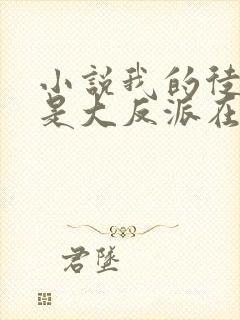 小説我的徒
是大反派在
君墜